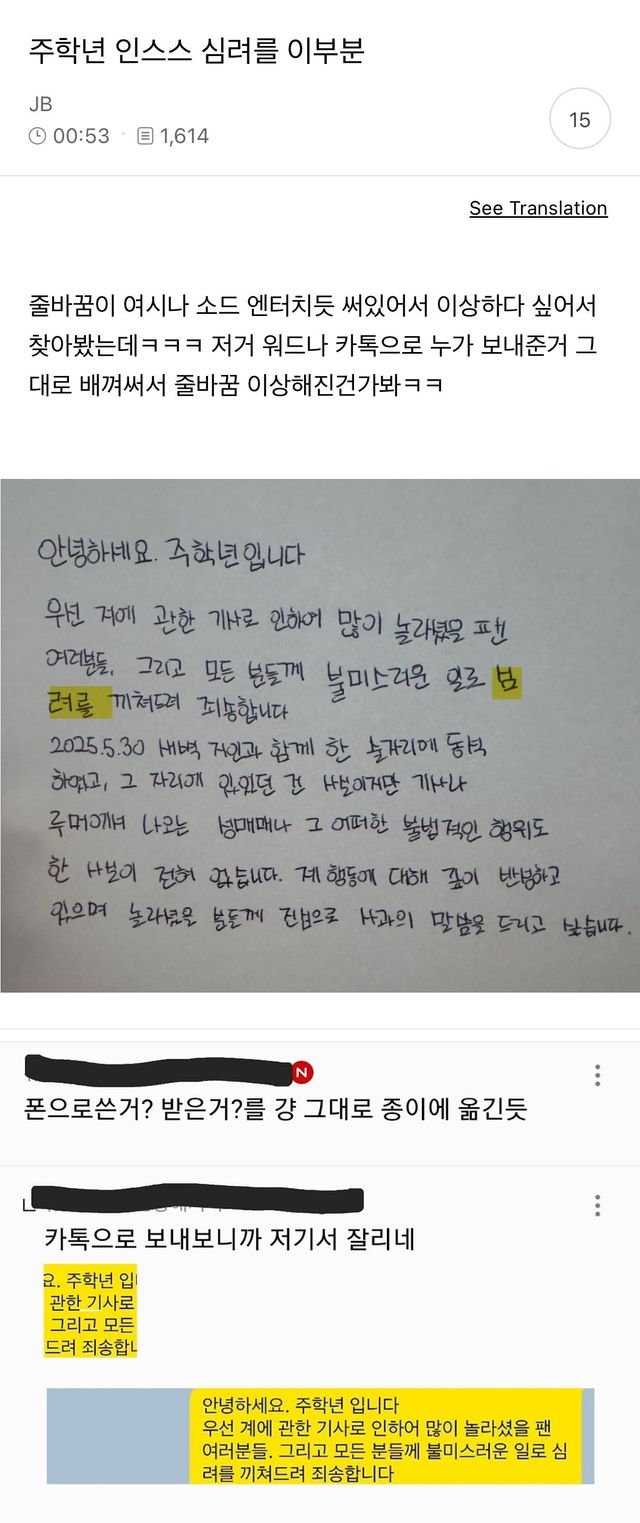 주학년 인스스 심려를 이부분
JB
00:53 1,614
15
See Translation
줄바꿈이 여시나 소드 엔터치듯 써있어서 이상하다 싶어서
찾아봤는데ㅋㅋㅋ 저거 워드나 카톡으로 누가 보내준거 그
대로 배껴써서 줄바꿈 이상해진건가봐ㅋㅋ
안녕하세요. 주학년입니다
우선 저에 관한 기사로 인하여 많이 놀라셨을 팬
여러분들, 그리고 모든 분들께 불미스러운 일로 심
려를 끼쳐드려 죄송합니다
2025.5.30 새벽 지인과 함께 한 술자리에 동석
하였고, 그 자리에 있었던 건 사실이지만 기사나
루머에서 나오는 성매매나 그 어떠한 불법적인 행위도
한 사실이 전혀 없습니다. 제 행동에 대해 깊이 반성하고
있으며 놀라셨을 분들께 진심으로 사과의 말씀을 드리고 싶습니다.
N
폰으로쓴거? 받은거?를 걍 그대로 종이에 옮긴듯
카톡으로 보내보니까 저기서 잘리네
요. 주학년 입
관한 기사로
그리고 모든
드려 죄송합니
안녕하세요. 주학년 입니다
우선 계에 관한 기사로 인하어 많이 놀라셨을 팬
여러분들. 그리고 모든 분들께 불미스러운 일로 심
려를 끼쳐드려 죄송합니다